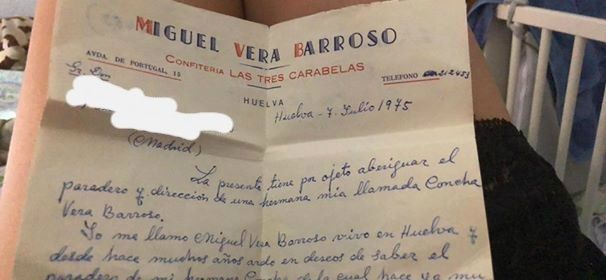 MIGUEL VERA BARROSO
CONFITERIA LAS TRES CARABELAS
AVDA. DE PORTUGAL, 15
TELEFONO 212453
HUELVA
Sr. Don
Huelva - 7 - Julio 1975
(Madrid)
La presente tiene por ojeto aberiguar el
paradero y dirección de una hermana mia llamada Concha
Vera Barroso.
Yo me llamo Miguel Vera Barroso vivo en Huelva y
desde hace muchos años ardo en deseos de saber el
paradero de mi hermana Concha de la cual hace ya mu